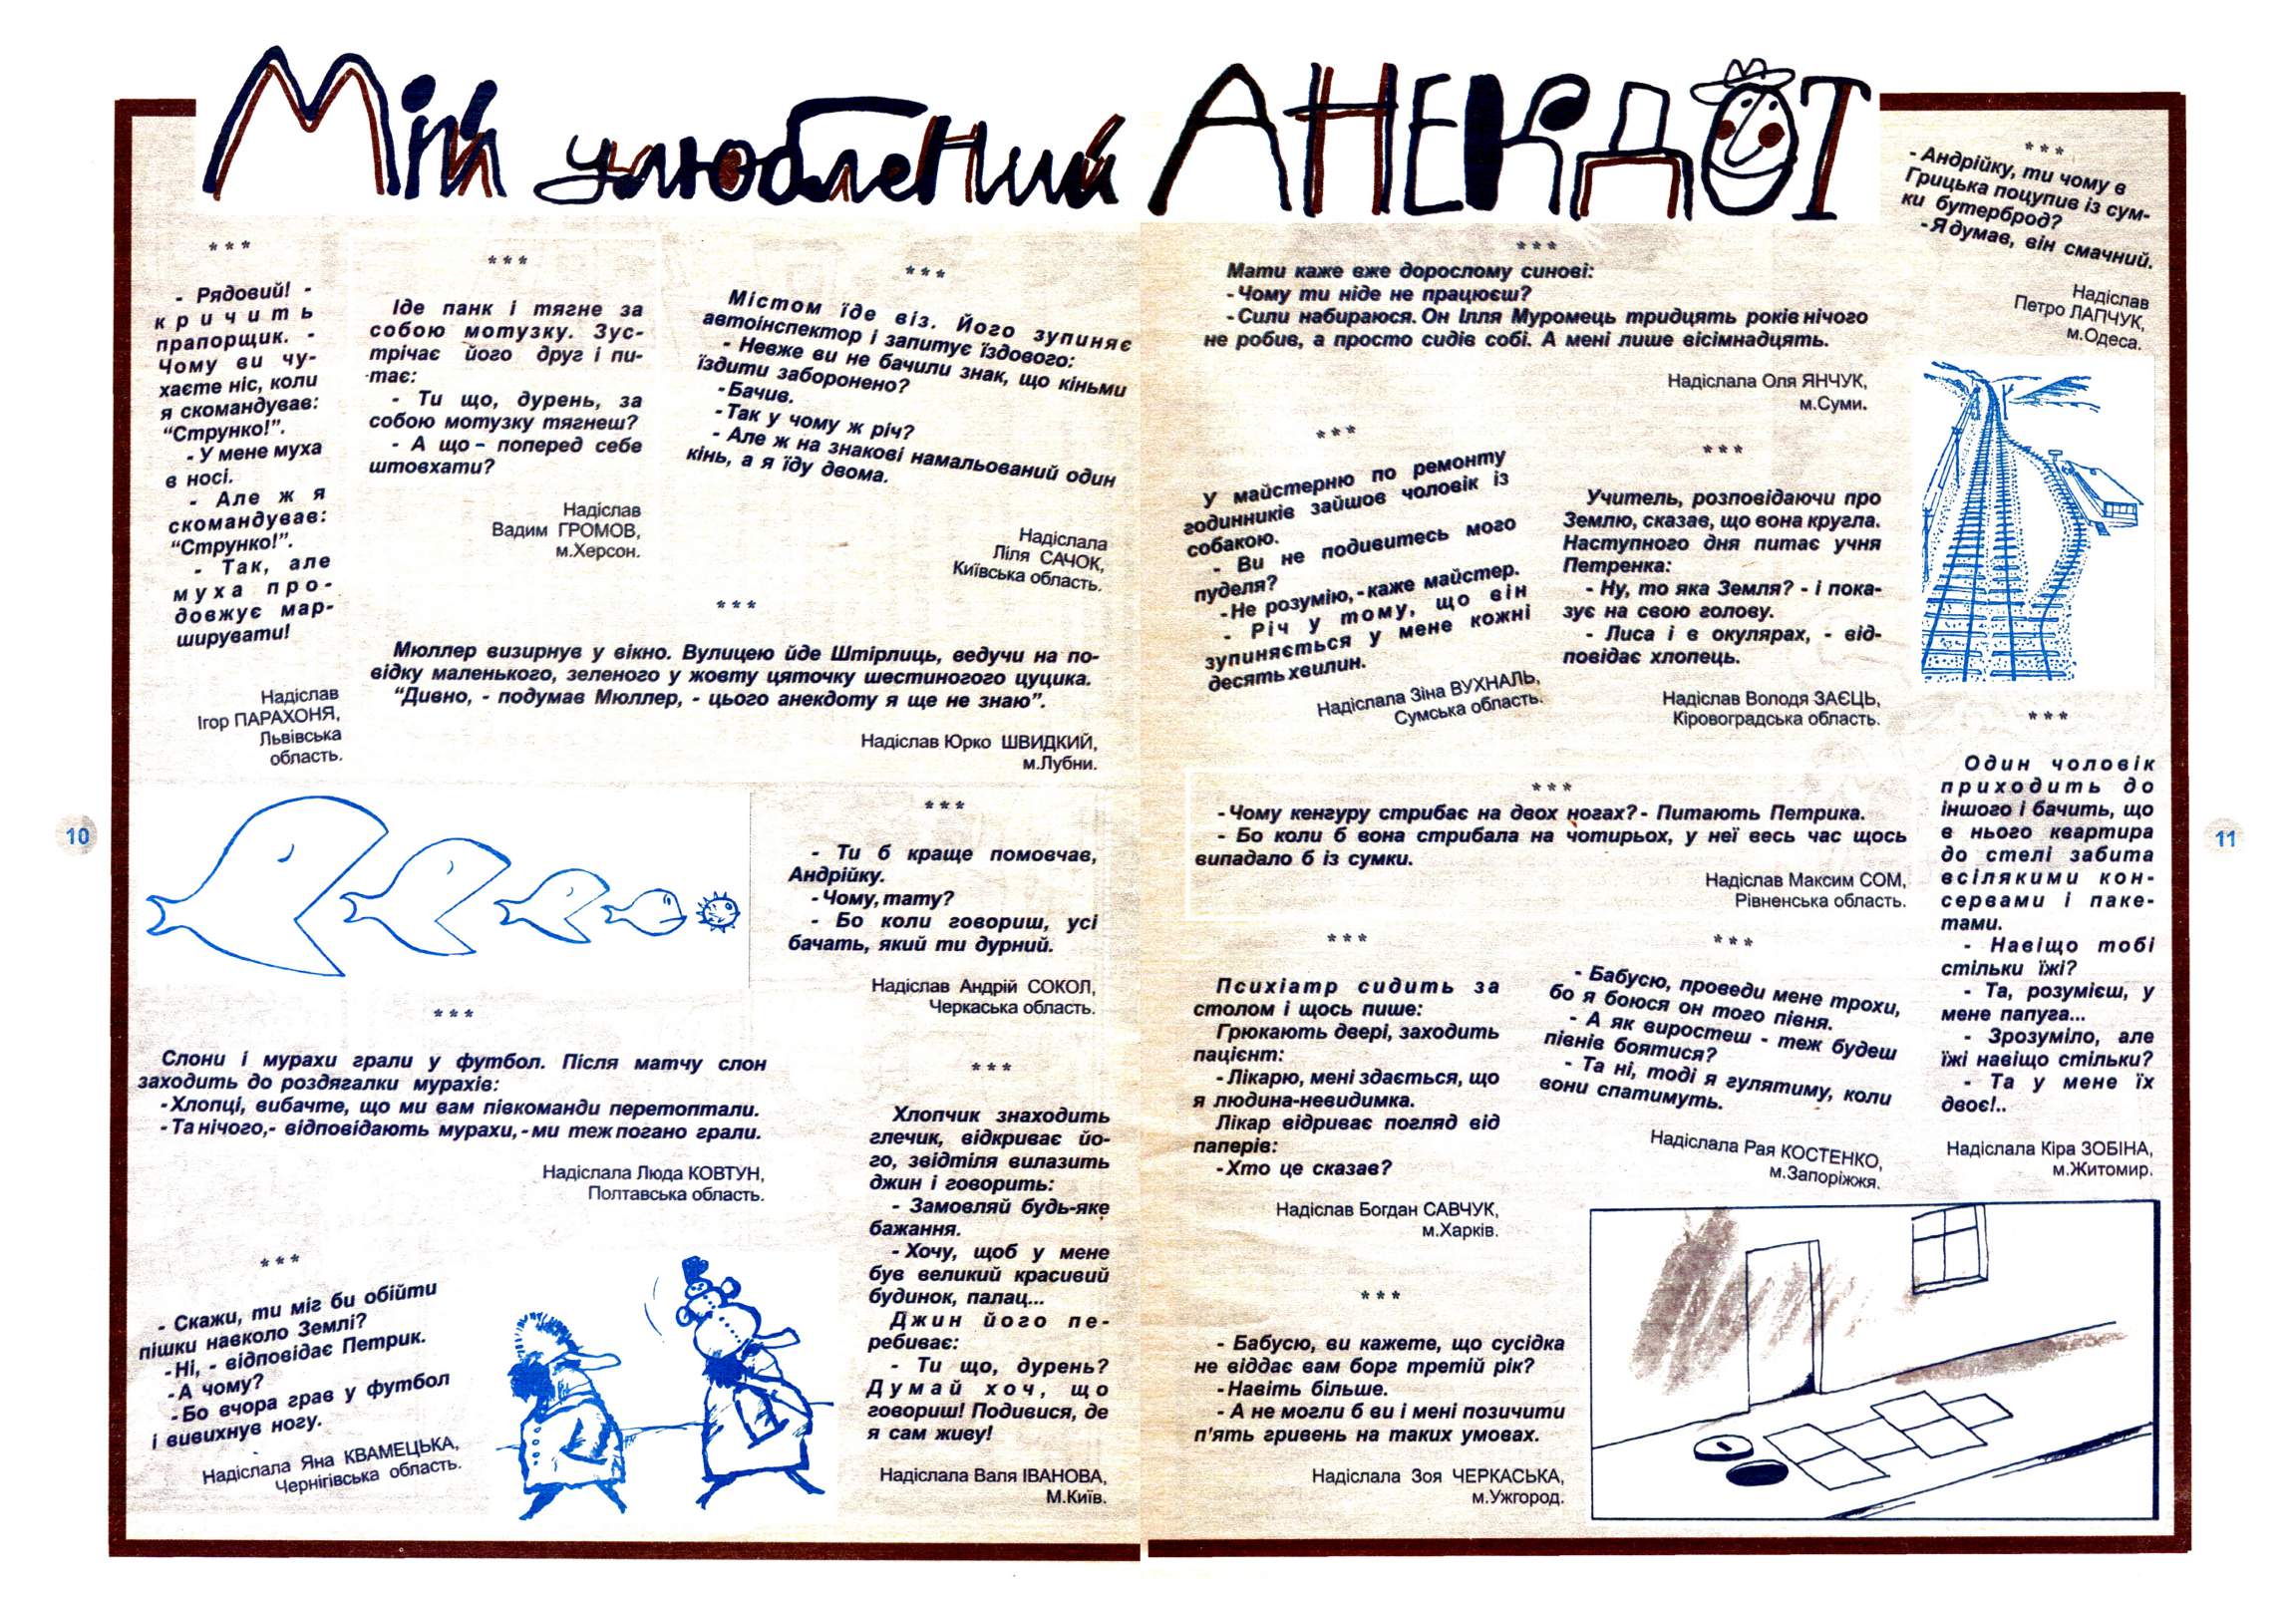 Мій улюблений АНЕКДОТ
* * *
- Рядовий! -
кричить
прапорщик. -
Чому ви чу-
хаєте ніс, коли
я скомандував:
“Струнко!”.
- У мене муха
в носі.
- Але ж я
скомандував:
“Струнко!”.
- Так, але
муха про-
довжує мар-
ширувати!
Надіслав
Ігор ПАРАХОНЯ,
Львівська
область.
* * *
Іде панк і тягне за
собою мотузку. Зус-
трічає його друг і пи-
тає:
- Ти що, дурень, за
собою мотузку тягнеш?
- А що – поперед себе
штовхати?
Надіслав
Вадим ГРОМОВ,
м.Херсон.
* * *
Містом їде віз. Його зупиняє
автоінспектор і запитує їздового:
- Невже ви не бачили знак, що кіньми
їздити заборонено?
- Бачив.
- Так у чому ж річ?
- Але ж на знакові намальований один
кінь, а я їду двома.
Надіслала
Ліля САЧОК,
Київська область.
* * *
Мюллер визирнув у вікно. Вулицею йде Штірлиць, ведучи на по-
відку маленького, зеленого у жовту цяточку шестиногого цуцика.
“Дивно, - подумав Мюллер, - цього анекдоту я ще не знаю”.
Надіслав Юрко ШВИДКИЙ,
м.Лубни.
* * *
- Ти б краще помовчав,
Андрійку.
- Чому, тату?
- Бо коли говориш, усі
бачать, який ти дурний.
Надіслав Андрій СОКОЛ,
Черкаська область.
* * *
Слони і мурахи грали у футбол. Після матчу слон
заходить до роздягалки мурахів:
- Хлопці, вибачте, що ми вам півкоманди перетоптали.
- Та нічого,- відповідають мурахи, - ми теж погано грали.
Надіслала Люда КОВТУН,
Полтавська область.
* * *
- Скажи, ти міг би обійти
пішки навколо Землі?
- Ні, - відповідає Петрик.
- А чому?
- Бо вчора грав у футбол
і вивихнув ногу.
Надіслала Яна КВАМЕЦЬКА,
Чернігівська область.
* * *
Хлопчик знаходить
глечик, відкриває йо-
го, звідтіля вилазить
джин і говорить:
- Замовляй будь-яке
бажання.
- Хочу, щоб у мене
був великий красивий
будинок, палац...
Джин його пе-
ребиває:
- Ти що, дурень?
Думай хоч, що
говориш! Подивися, де
я сам живу!
Надіслала Валя ІВАНОВА,
М.Київ.
10
* * *
Мати каже вже дорослому синові:
- Чому ти ніде не працюєш?
- Сили набираюся. Он Ілля Муромець тридцять років нічого
не робив, а просто сидів собі. А мені лише вісімнадцять.
Надіслала Оля ЯНЧУК,
м.Суми.
* * *
- Андрійку, ти чому в
Грицька поцупив із сум-
ки бутерброд?
- Я думав, він смачний.
Надіслав
Петро ЛАПЧУК,
м.Одеса.
* * *
У майстерню по ремонту
годинників зайшов чоловік із
собакою.
- Ви не подивитесь мого
пуделя?
- Не розумію, - каже майстер.
- Річ у тому, що він
зупиняється у мене кожні
десять хвилин.
Надіслала Зіна ВУХНАЛЬ,
Сумська область.
* * *
Учитель, розповідаючи про
Землю, сказав, що вона кругла.
Наступного дня питає учня
Петренка:
- Ну, то яка Земля? - і пока-
зує на свою голову.
- Лиса і в окулярах, - від-
повідає хлопець.
Надіслав Володя ЗАЄЦЬ,
Кіровоградська область.
* * *
- Чому кенгуру стрибає на двох ногах? - Питають Петрика.
- Бо коли б вона стрибала на чотирьох, у неї весь час щось
випадало б із сумки.
Надіслав Максим СОМ,
Рівненська область.
* * *
Один чоловік
приходить до
іншого і бачить, що
в нього квартира
до стелі забита
всілякими кон-
сервами і паке-
тами.
- Навіщо тобі
стільки їжі?
- Та, розумієш, у
мене папуга...
- Зрозуміло, але
їжі навіщо стільки?
- Та у мене їх
двоє!..
Надіслала Кіра ЗОБІНА,
м.Житомир.
* * *
Психіатр сидить за
столом і щось пише:
Грюкають двері, заходить
пацієнт:
- Лікарю, мені здається, що
я людина-невидимка.
Лікар відриває погляд від
паперів:
- Хто це сказав?
Надіслав Богдан САВЧУК,
м.Харків.
* * *
- Бабусю, проведи мене трохи,
бо я боюся он того півня.
- А як виростеш - теж будеш
півнів боятися?
- Та ні, тоді я гулятиму, коли
вони спатимуть.
Надіслала Рая КОСТЕНКО,
м.Запоріжжя.
* * *
- Бабусю, ви кажете, що сусідка
не віддає вам борг третій рік?
- Навіть більше.
- А не могли б ви і мені позичити
п'ять гривень на таких умовах.
Надіслала Зоя ЧЕРКАСЬКА,
м.Ужгород.
11